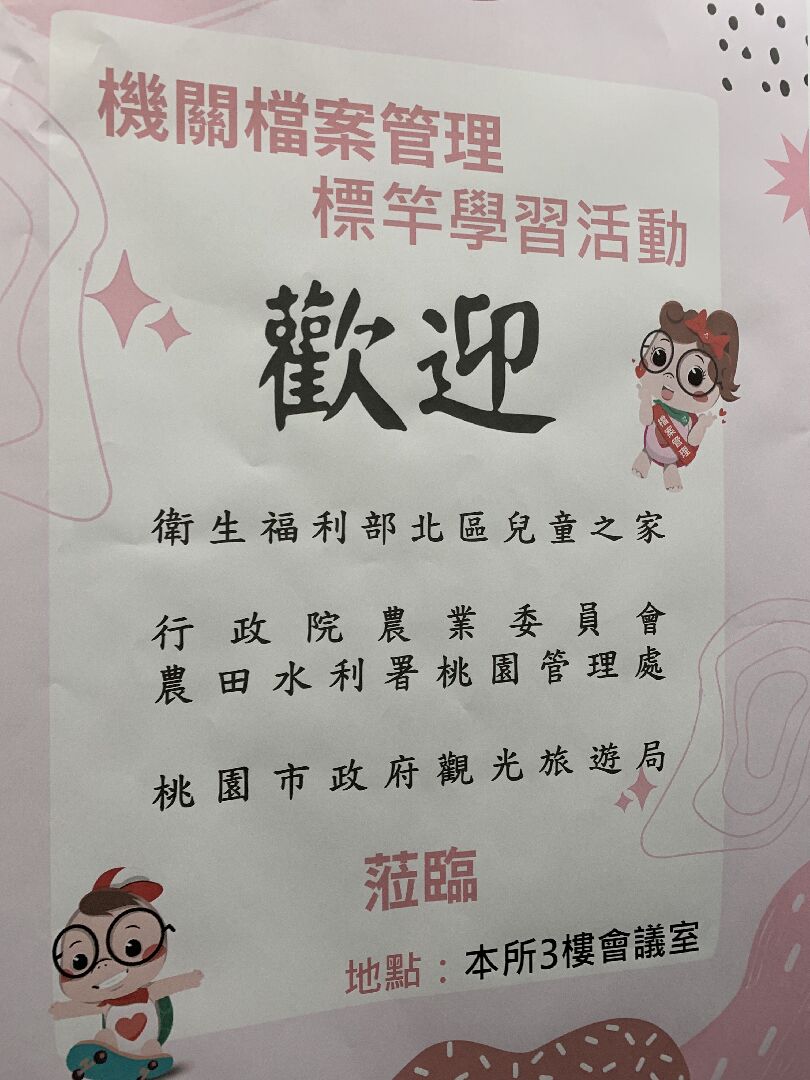 機關檔案管理
標竿學習活動
歡迎
檔案管理
衛生福利部北區兒童之家
行政院農業委員會
農田水利署桃園管理處
桃園市政府觀光旅遊局
蒞臨
地點：本所3樓會議室